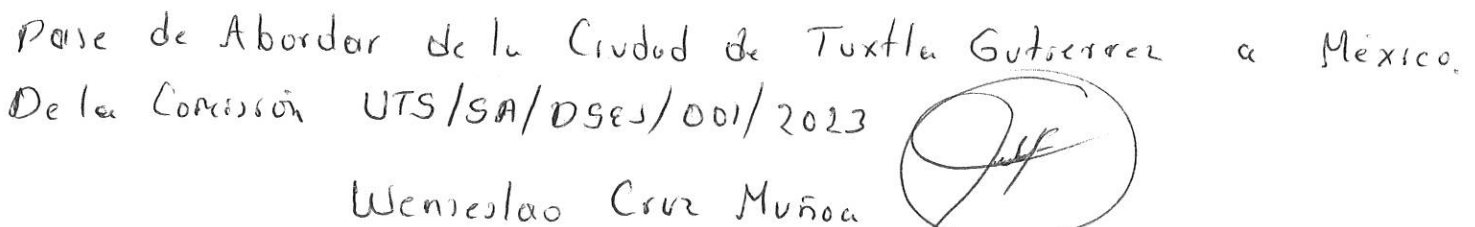 Pase de Abordar de la Ciudad de Tuxtla Gutierrez a México.
De la Comisión UTS/SA/DSEJ/001/2023
Wenseslao Cruz Muñoa